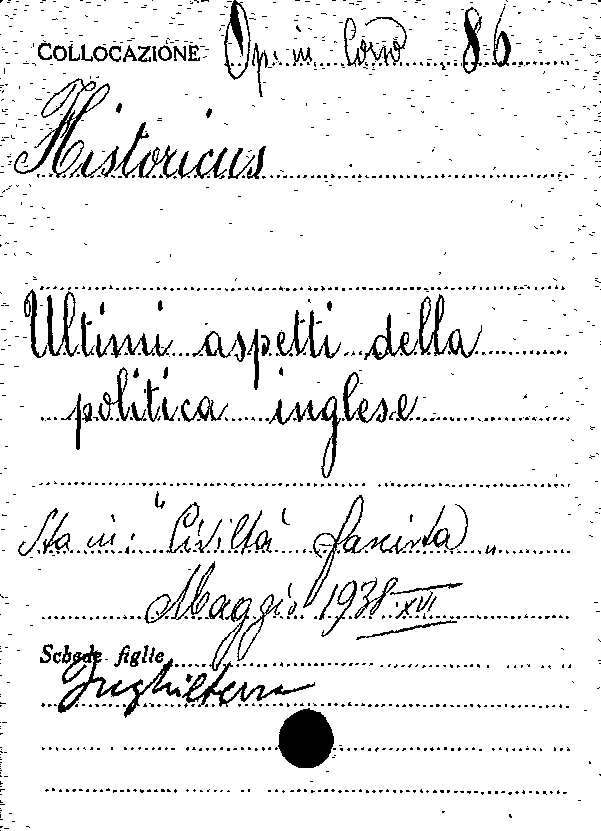 COLLOCAZIONE Op. in Corso 86
Historicus
Ultimi aspetti della
politica inglese
Sta in: "Civiltà fascista"
Maggio 1938-XVI
Schede figlie
Inghilterra